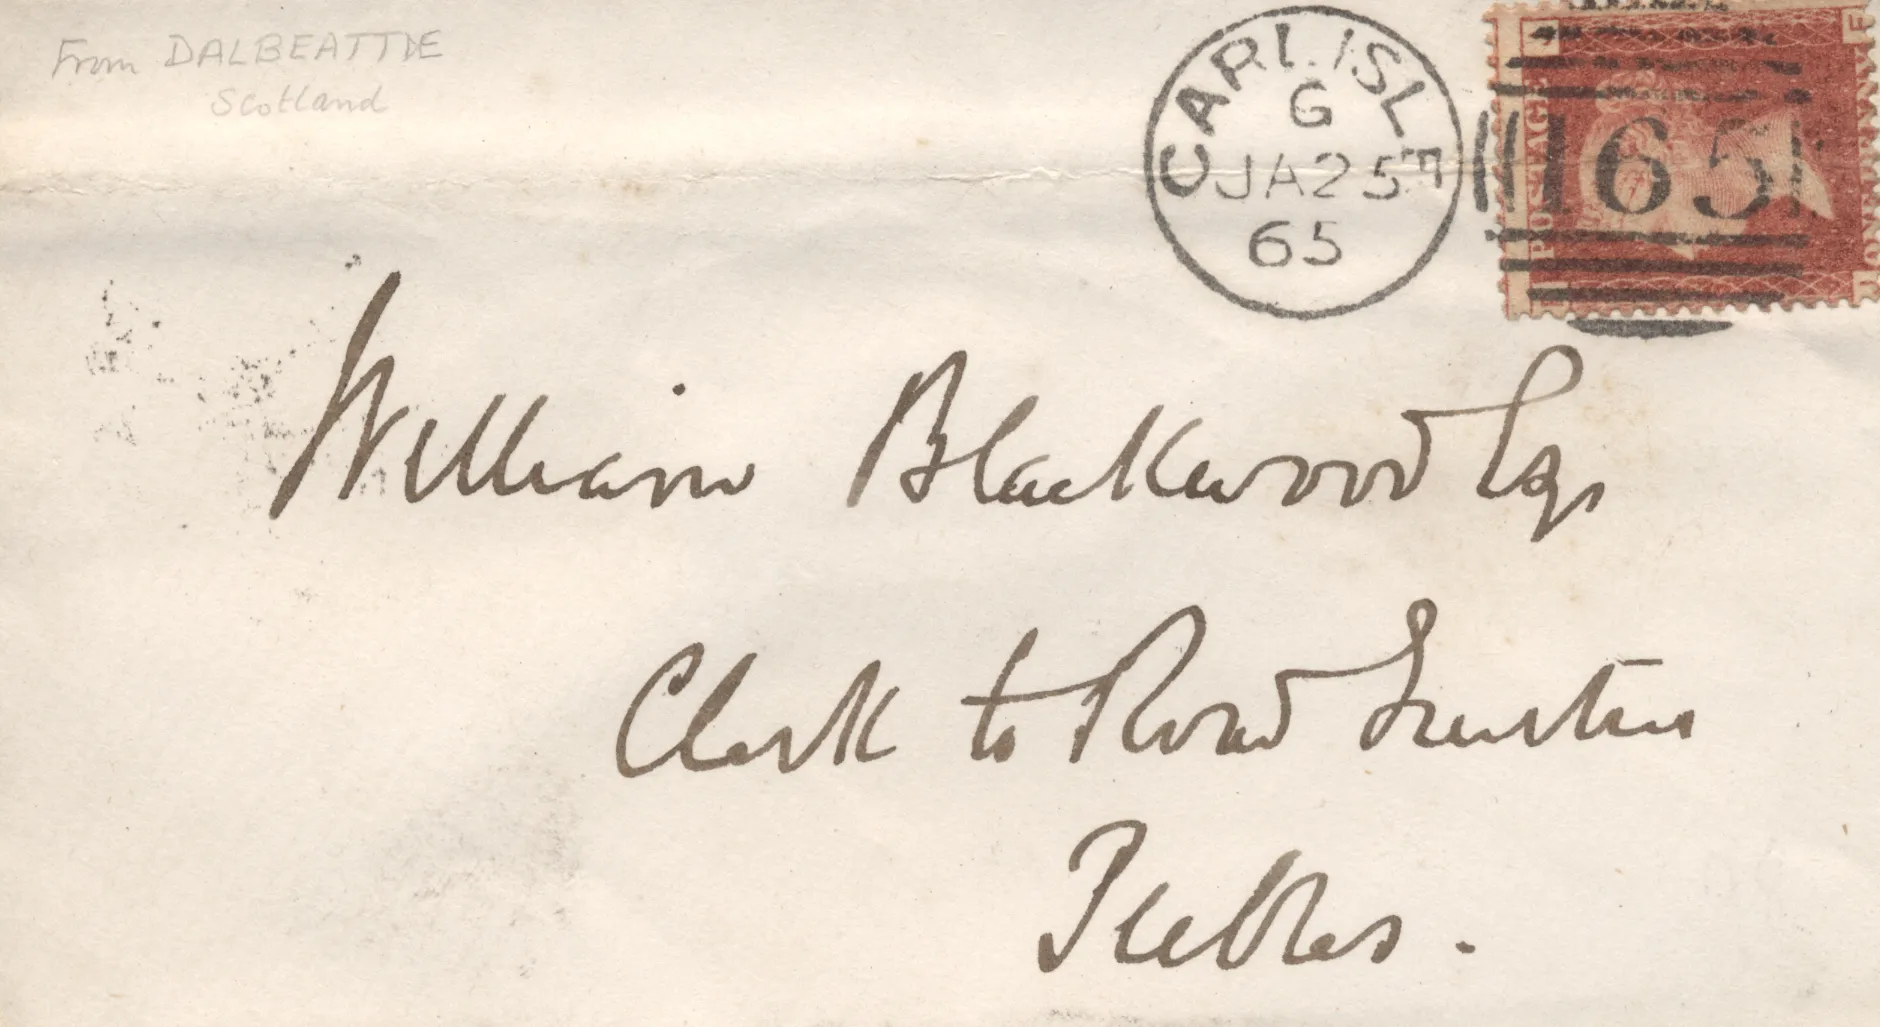 From DALBEATTIE
Scotland
CARLISLE
G
JA 25
65
165
POSTAGE
William Blackwood Esqr
Clerk to Road Trustees
Peebles.